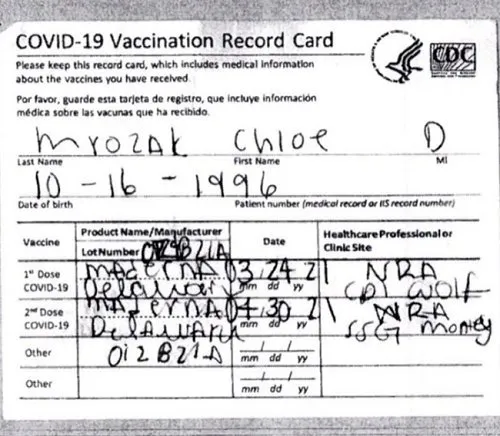 COVID-19 Vaccination Record Card
CDC
Please keep this record card, which includes medical information
about the vaccines you have received.
Por favor, guarde esta tarjeta de registro, que incluye información
médica sobre las vacunas que ha recibido.
Mrozak Chloe D
Last Name First Name MI
10-16-1996
Date of birth Patient number (medical record or IIS record number)
Vaccine Product Name/Manufacturer Date Healthcare Professional or
Lot Number Clinic Site
1st Dose MADERNA 03 24 21 NRA
COVID-19 Delaware mm dd yy CPT Wolf
2nd Dose MADERNA 04 30 21 NRA
COVID-19 DelAWARE mm dd yy SSG Montey
Other 012B21A
mm dd yy
Other
mm dd yy